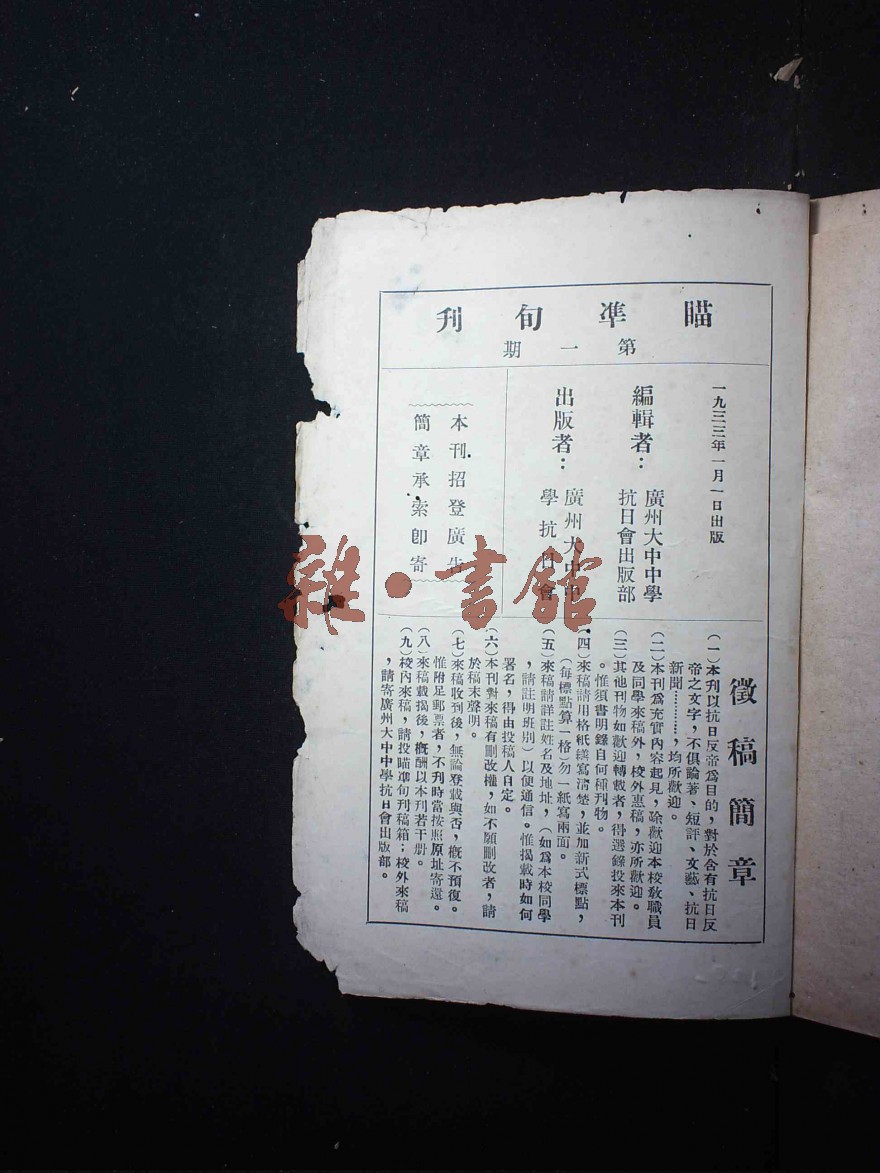 瞄準旬刊
第一期
一九三三年一月一日出版
編輯者：
廣州大中中學
抗日會出版部
出版者：
廣州大中中
學抗日會
本刊招登廣告
簡章承索卽寄
徵稿簡章
（一）本刊以抗日反帝爲目的，對於含有抗日反
帝之文字，不俱論著、短評、文藝、抗日
新聞…………，均所歡迎。
（二）本刊爲充實內容起見，除歡迎本校敎職員
及同學來稿外，校外惠稿，亦所歡迎。
（三）其他刊物如歡迎轉載者，得選錄投來本刊
。惟須書明錄自何種刊物。
（四）來稿請用格紙繕寫清楚，並加新式標點，
（每標點算一格）勿一紙寫兩面。
（五）來稿請詳註姓名及地址，（如爲本校同學
，請註明班別）以便通信。惟揭載時如何
署名，得由投稿人自定。
（六）本刊對來稿有刪改權，如不願刪改者，請
於稿末聲明。
（七）來稿收到後，無論登載與否，槪不預復。
惟附足郵票者，不刋時當按照原址寄還。
（八）來稿載揭後，槪酬以本刊若干册。
（九）校內來稿，請投瞄準旬刊稿箱；校外來稿
，請寄廣州大中中學抗日會出版部。
雜·書館